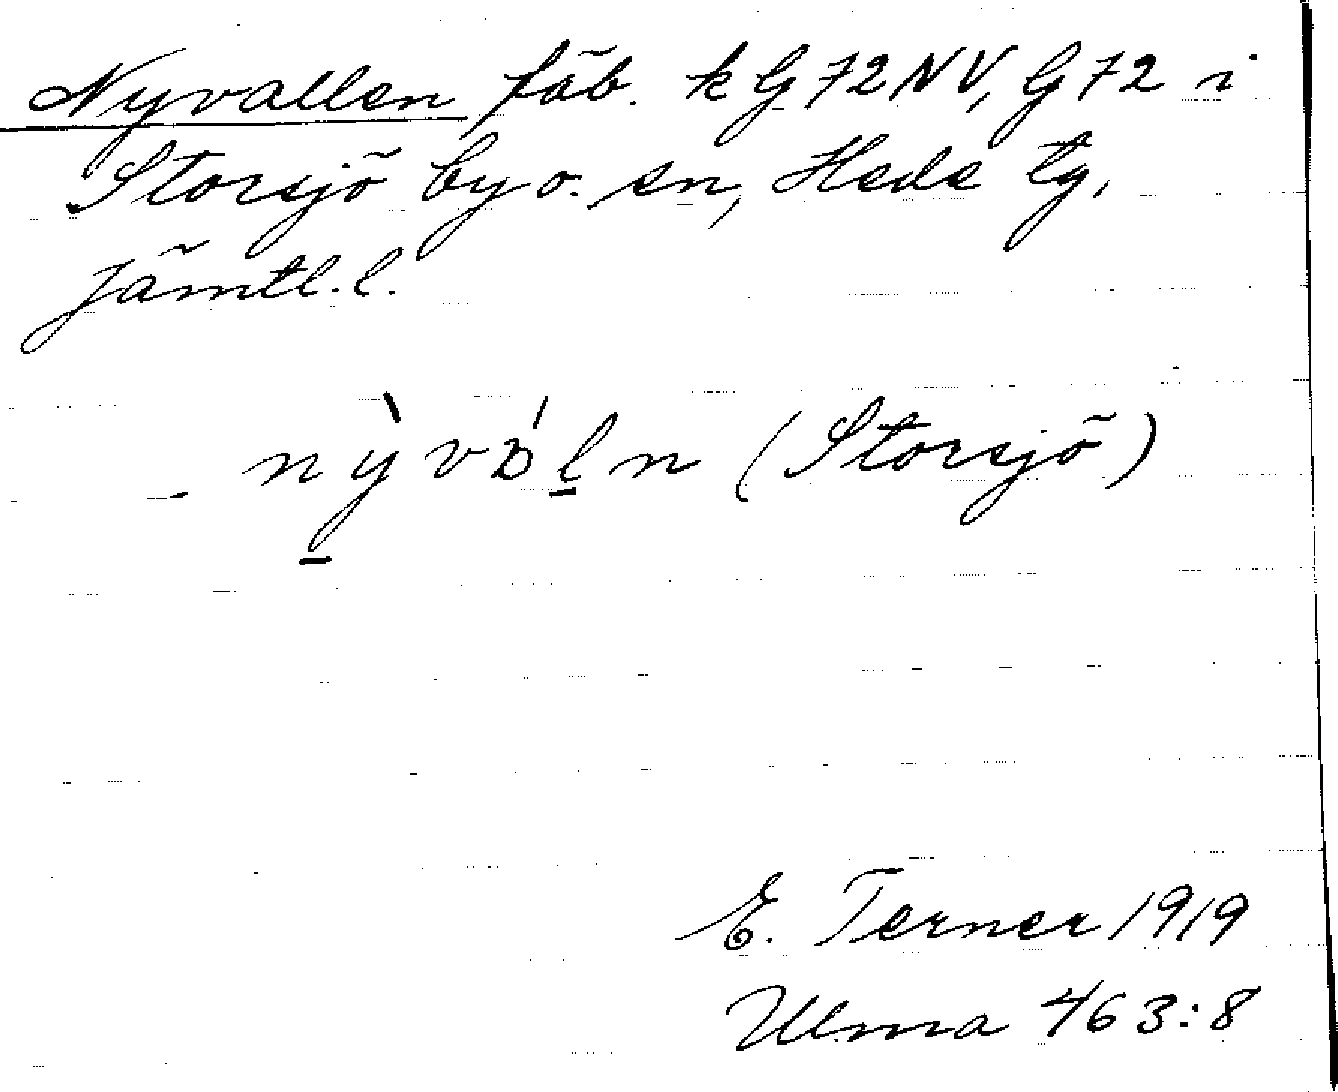 Nyvallen fäb. k G72NV, G72 i
Storsjö by o. sn, Hede tg,
Jämtl. l.
(Storsjö)
E. Terner 1919
Ulma 463:8